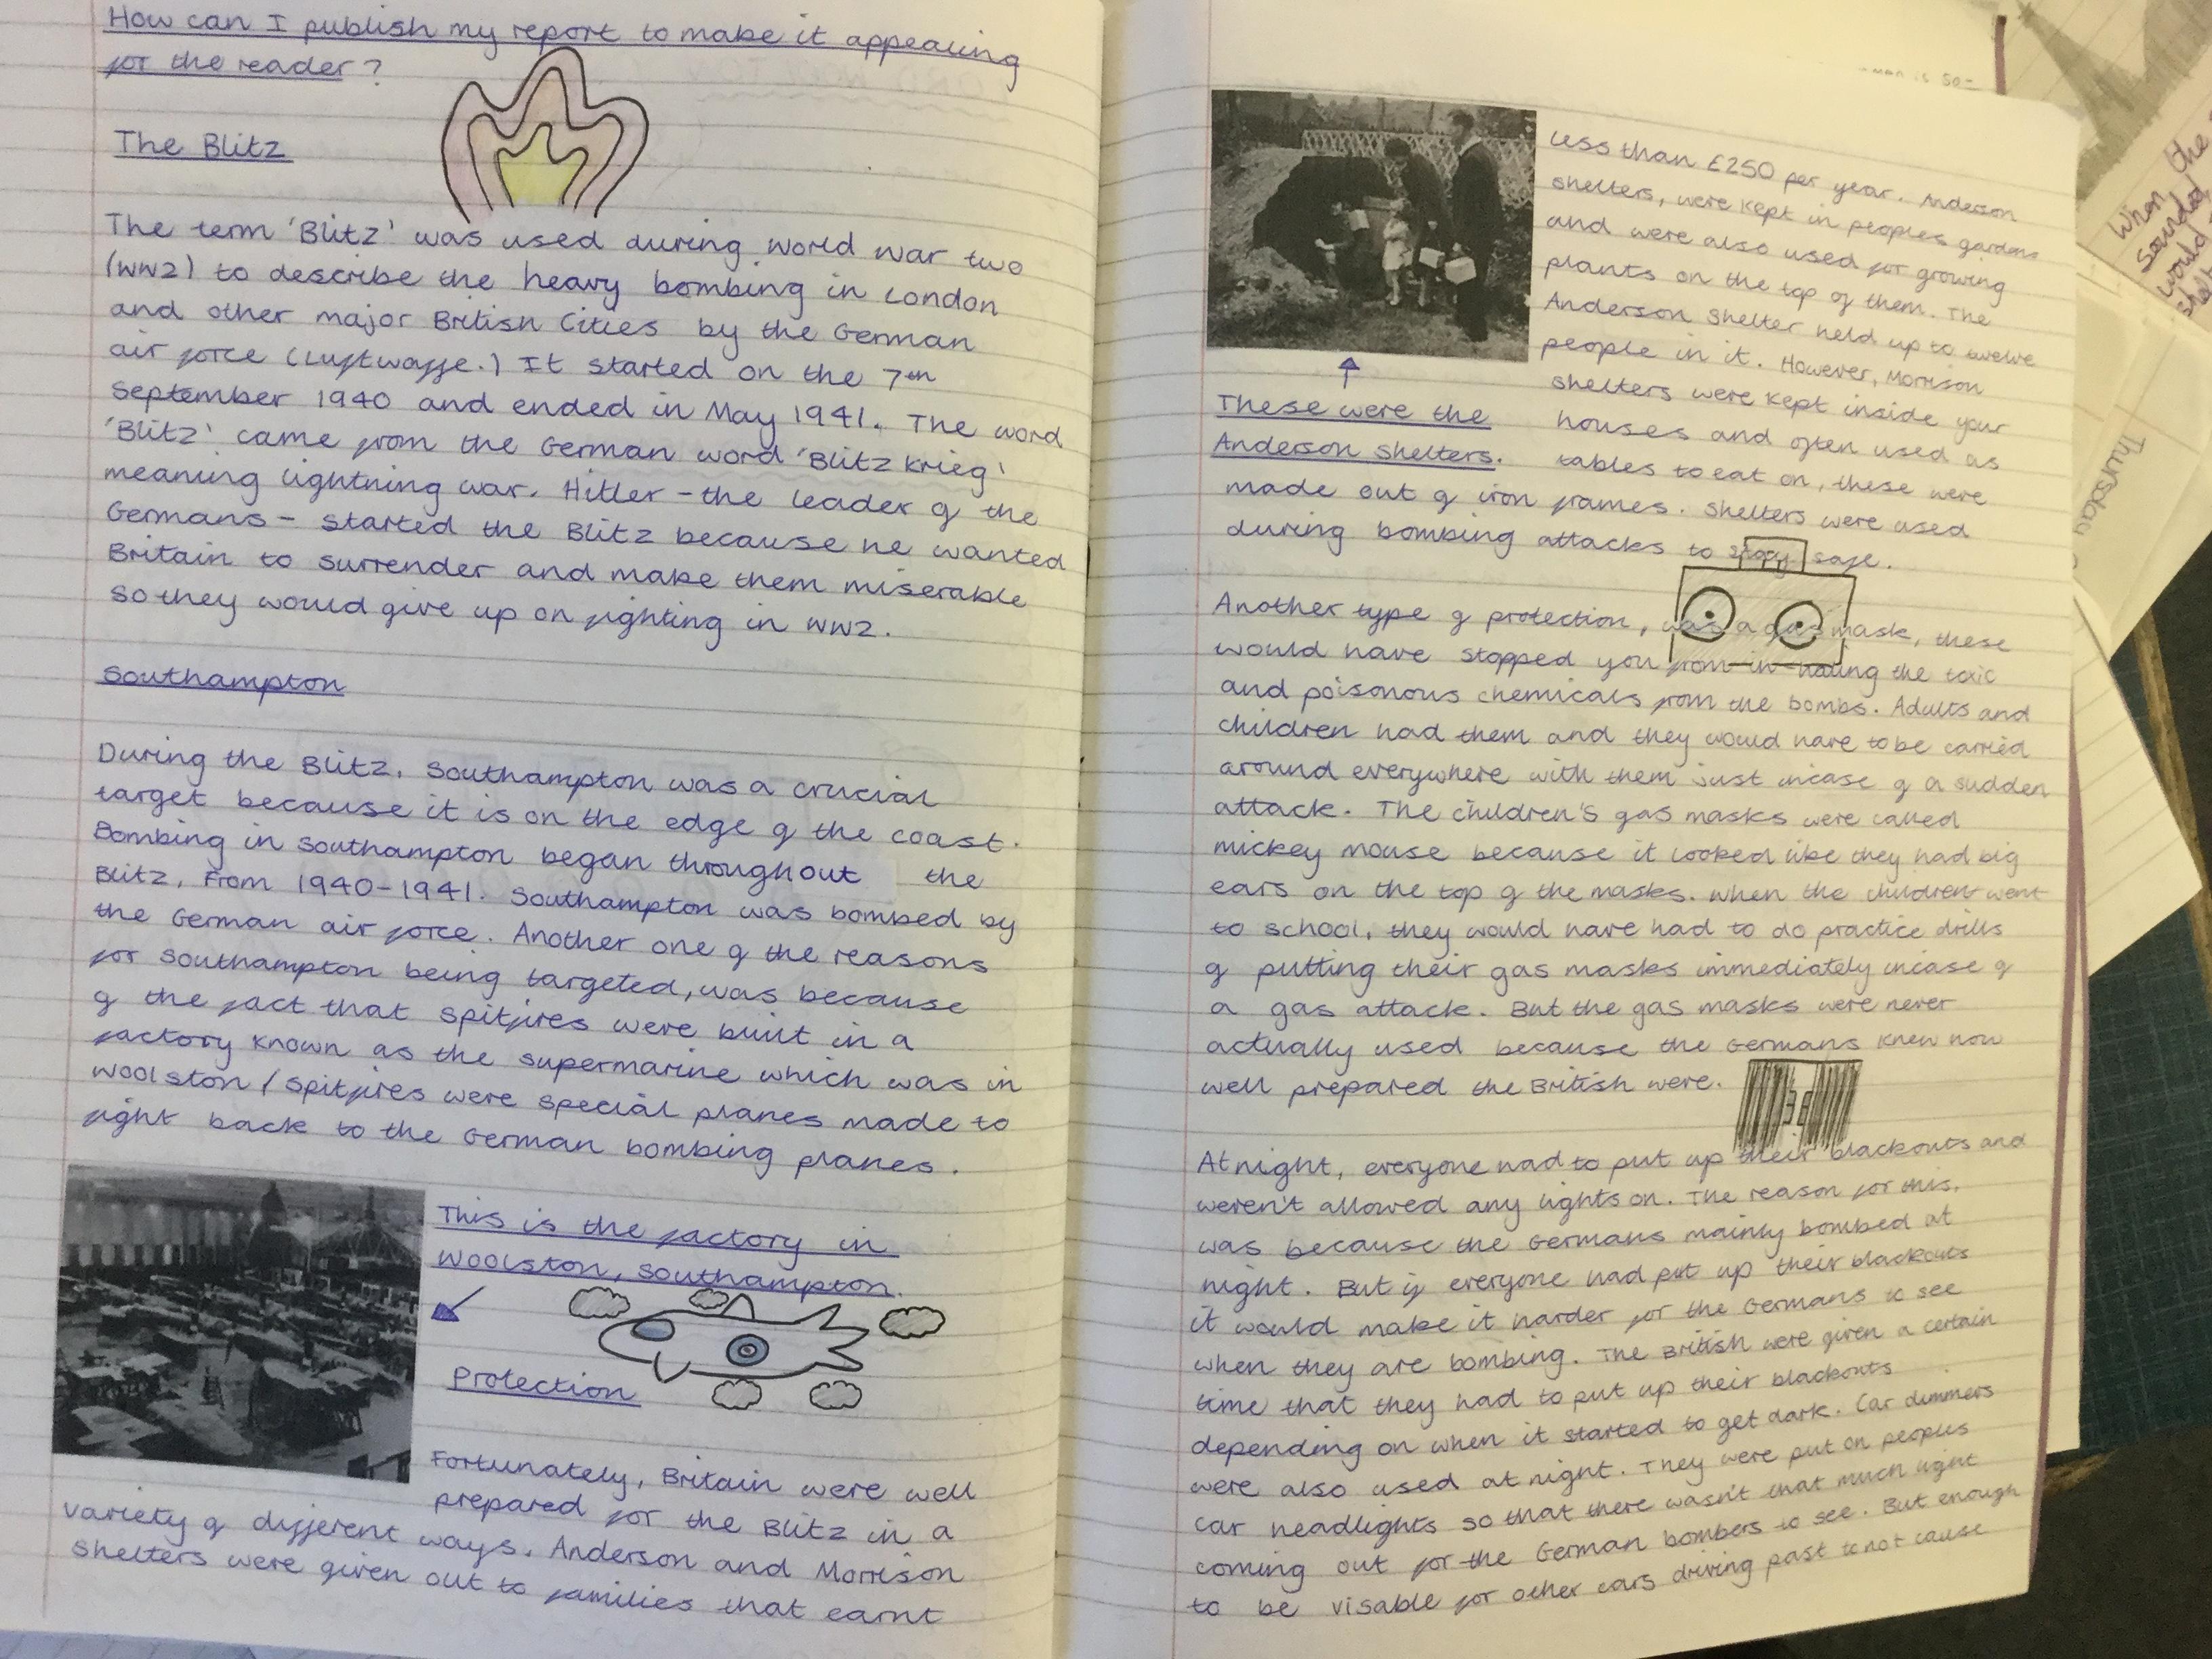 How can I publish my report to make it appealing
for the reader?
The Blitz
The term 'Blitz' was used during world war two
(WW2) to describe the heavy bombing in London
and other major British Cities by the German
air force (Luftwaffe.) It started on the 7th
September 1940 and ended in May 1941. The word
'Blitz' came from the German word 'Blitz krieg'
meaning lightning war. Hitler - the leader of the
Germans - started the Blitz because he wanted
Britain to surrender and make them miserable
so they would give up on fighting in WW2.
Southampton
During the Blitz, Southampton was a crucial
target because it is on the edge of the coast.
Bombing in Southampton began throughout the
Blitz, From 1940-1941. Southampton was bombed by
the German air force. Another one of the reasons
for Southampton being targeted, was because
of the fact that spitfires were built in a
factory known as the supermarine which was in
Woolston / Spitfires were special planes made to
fight back to the German bombing planes.
This is the factory in
Woolston, Southampton.
Protection
Fortunately, Britain were well
prepared for the Blitz in a
variety of different ways. Anderson and Morrison
shelters were given out to families that earnt
less than £250 per year. Anderson
shelters, were kept in peoples gardens
and were also used for growing
plants on the top of them. The
Anderson Shelter held up to twelve
people in it. However, Morrison
shelters were kept inside your
houses and often used as
tables to eat on, these were
These were the
Anderson Shelters.
made out of iron frames. Shelters were used
during bombing attacks to stay safe.
Another type of protection, was a gas mask, these
would have stopped you from in-haling the toxic
and poisonous chemicals from the bombs. Adults and
children had them and they would have to be carried
around everywhere with them just incase of a sudden
attack. The children's gas masks were called
mickey mouse because it looked like they had big
ears on the top of the masks. When the children went
to school, they would have had to do practice drills
of putting their gas masks immediately incase of
a gas attack. But the gas masks were never
actually used because the Germans knew how
well prepared the British were.
At night, everyone had to put up their blackouts and
weren't allowed any lights on. The reason for this,
was because the Germans mainly bombed at
night. But if everyone had put up their blackouts
it would make it harder for the Germans to see
when they are bombing. The British were given a certain
time that they had to put up their blackouts
depending on when it started to get dark. Car dimmers
were also used at night. They were put on peoples
car headlights so that there wasn't that much light
coming out for the German bombers to see. But enough
to be visable for other cars driving past to not cause
When the
sounded
would
Thursday